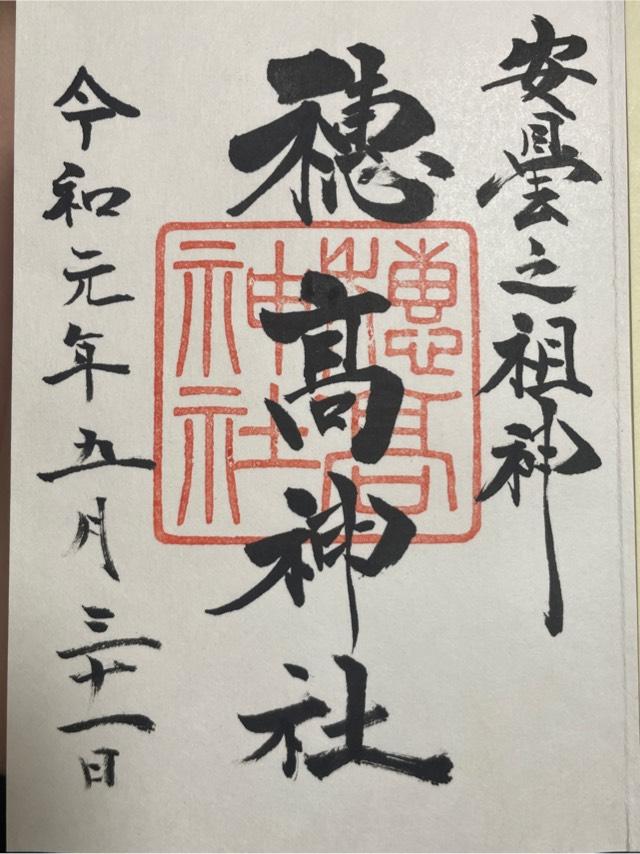 安曇之祖神
穂髙神社
令和元年九月三十一日
穂高
神社